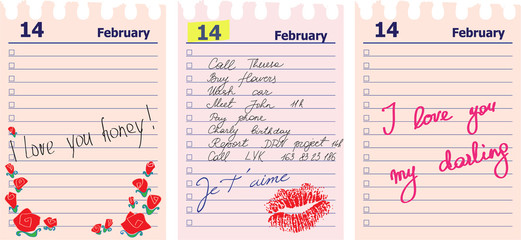 14 February
I love you honey!
14 February
Call Theresa
Buy flowers
Wash car
Meet John 11h
Pay phone
Charly birthday
Report DFN project 14h
Call LYK 163 23 23 186
Je t'aime
14 February
I love you
my darling